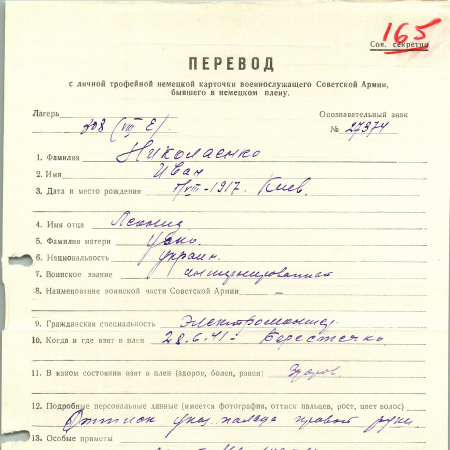 165
Сов. секретно
ПЕРЕВОД
с личной трофейной немецкой карточки военнослужащего Советской Армии,
бывшего в немецком плену.
Лагерь 308 (VIII E). Опознавательный знак
№ 27374
1. Фамилия Николаенко
2. Имя Иван
3. Дата и место рождения 1917. Киев.
4. Имя отца Леонид
5. Фамилия матери
6. Национальность украин.
7. Воинское звание
8. Наименование воинской части Советской Армии –
9. Гражданская специальность Электромонтер.
10. Когда и где взят в плен 28.6.41 – Берестечко
11. В каком состоянии взят в плен (здоров, болен, ранен) Здоров.
12. Подробные персональные данные (имеется фотография, оттиск пальцев, рост, цвет волос)
Оттиск указ. пальца правой руки.
13. Особые приметы